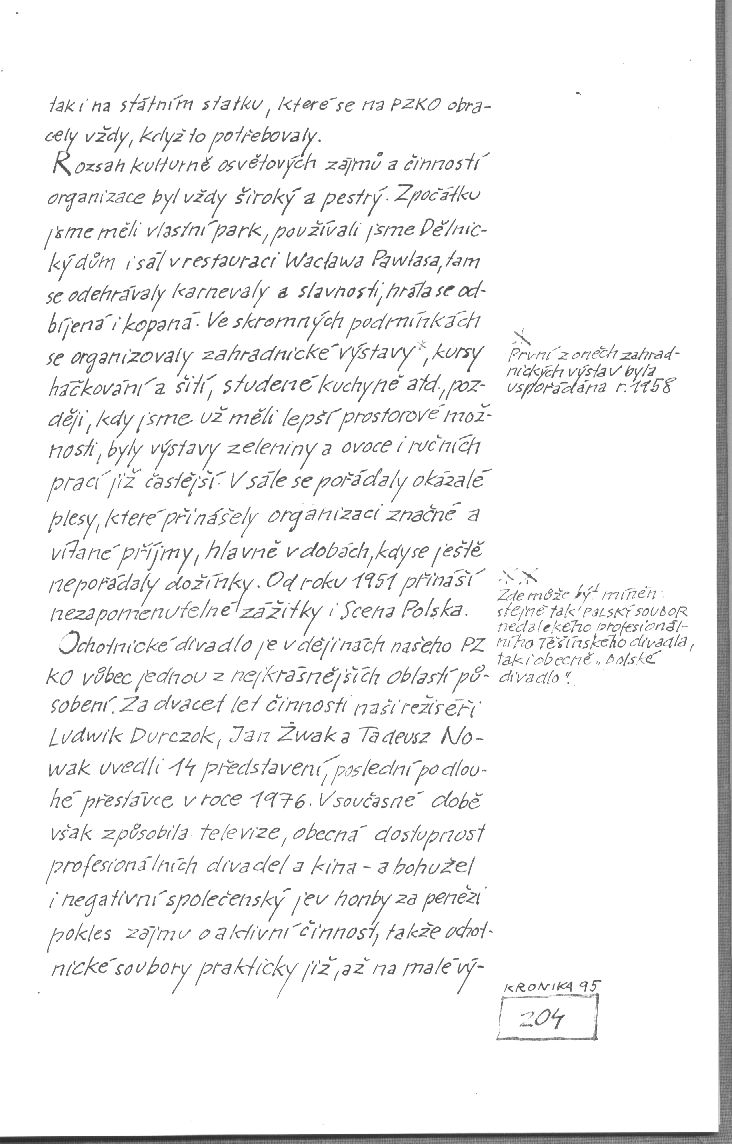 tak i na státním statku, které se na PZKO obra-
cely vždy, když to potřebovaly.
Rozsah kulturně osvětových zájmů a činností
organizace byl vždy široký a pestrý. Zpočátku
jsme měli vlastní park, používali jsme Dělnic-
ký dům i sál v restauraci Wacława Pawlasa, tam
se odehrávaly karnevaly a slavnosti, hrála se od-
bíjená i kopaná. Ve skromných podmínkách
se organizovaly zahradnické výstavy*, kursy
háčkování a šití, studené kuchyně atd., poz-
ději, kdy jsme už měli lepší prostorové mož-
nosti, byly výstavy zeleniny a ovoce i ručních
prací již častější. V sále se pořádaly okázalé
plesy, které přinášely organizaci značné a
vítané příjmy, hlavně v dobách, kdy se ještě
nepořádaly dožínky. Od roku 1951 přináší
nezapomenutelné zážitky i Scena Polska.
Ochotnické divadlo je v dějinách našeho PZ
KO vůbec jednou z nejkrásnějších oblastí pů-
sobení. Za dvacet let činnosti naši režiséři
Ludwik Durczok, Jan Żwak a Tadeusz No-
wak uvedli 14 představení, poslední po dlou-
hé přestávce v roce 1976. V současné době
však způsobila televize, obecná dostupnost
profesionálních divadel a kina - a bohužel
i negativní společenský jev honby za penězi
pokles zájmu o aktivní činnost, takže ochot-
nické soubory prakticky již, až na malé vý-
*
První z oněch zahrad-
nických výstav byla
uspořádána r. 1958
**
Zde může být míněn
stejně tak PALSKÝ SOUBOR
nedalekého profesionál-
ního Těšínského divadla,
tak i obecně „polské
divadlo".
KRONIKA 95
204